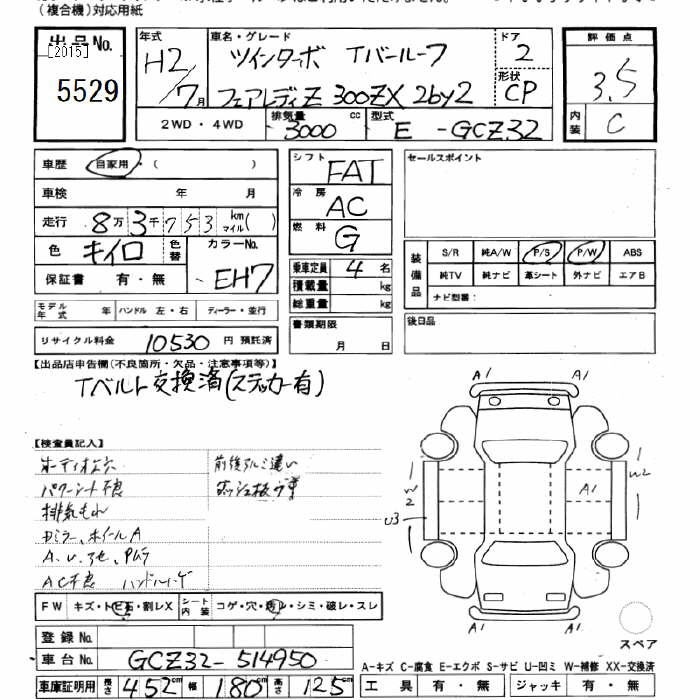 (複合機)対応用紙
出品No.
[2015]
5529
年式
H2/7月
車名・グレード
ツインターボ Tバールーフ
フェアレディZ 300ZX 2by2
ドア
2
形状
CP
2WD・4WD
排気量
3000 cc
型式
E-GCZ32
評価点
3.5
内装
C
車歴 自家用・( )
車検 年 月
走行 8万3千753 km マイル( )
色 キイロ 色替 カラーNo.
保証書 有・無 EH7
モデル年式 年 ハンドル 左・右 ディーラー・並行
リサイクル料金 10530 円 預託済
シフト FAT
冷房 AC
燃料 G
乗車定員 4 名
積載量 kg
総重量 kg
書類期限
月 日
セールスポイント
装備品
S/R 純A/W P/S P/W ABS
純TV 純ナビ 革シート 外ナビ エアB
ナビ型番:
後日品
【出品店申告欄(不良箇所・欠品・注意事項等)】
Tベルト交換済(ステッカー有)
【検査員記入】
パワーシート不良
排気もれ
ホイールA
A.U.
AC不良
前後アルミ違い
FW キズ・トビ石・割レX シート内装 コゲ・穴・スレ・シミ・破レ・スレ
登録No.
車台No. GCZ32-514950
車庫証明用 長さ 452cm 幅 180cm 高さ 125cm
A1 A1
W2
U3
A1
W2
A1 A1
スペア
A-キズ C-腐食 E-エクボ S-サビ U-凹ミ W-補修 XX-交換済
工具 有・無 ジャッキ 有・無